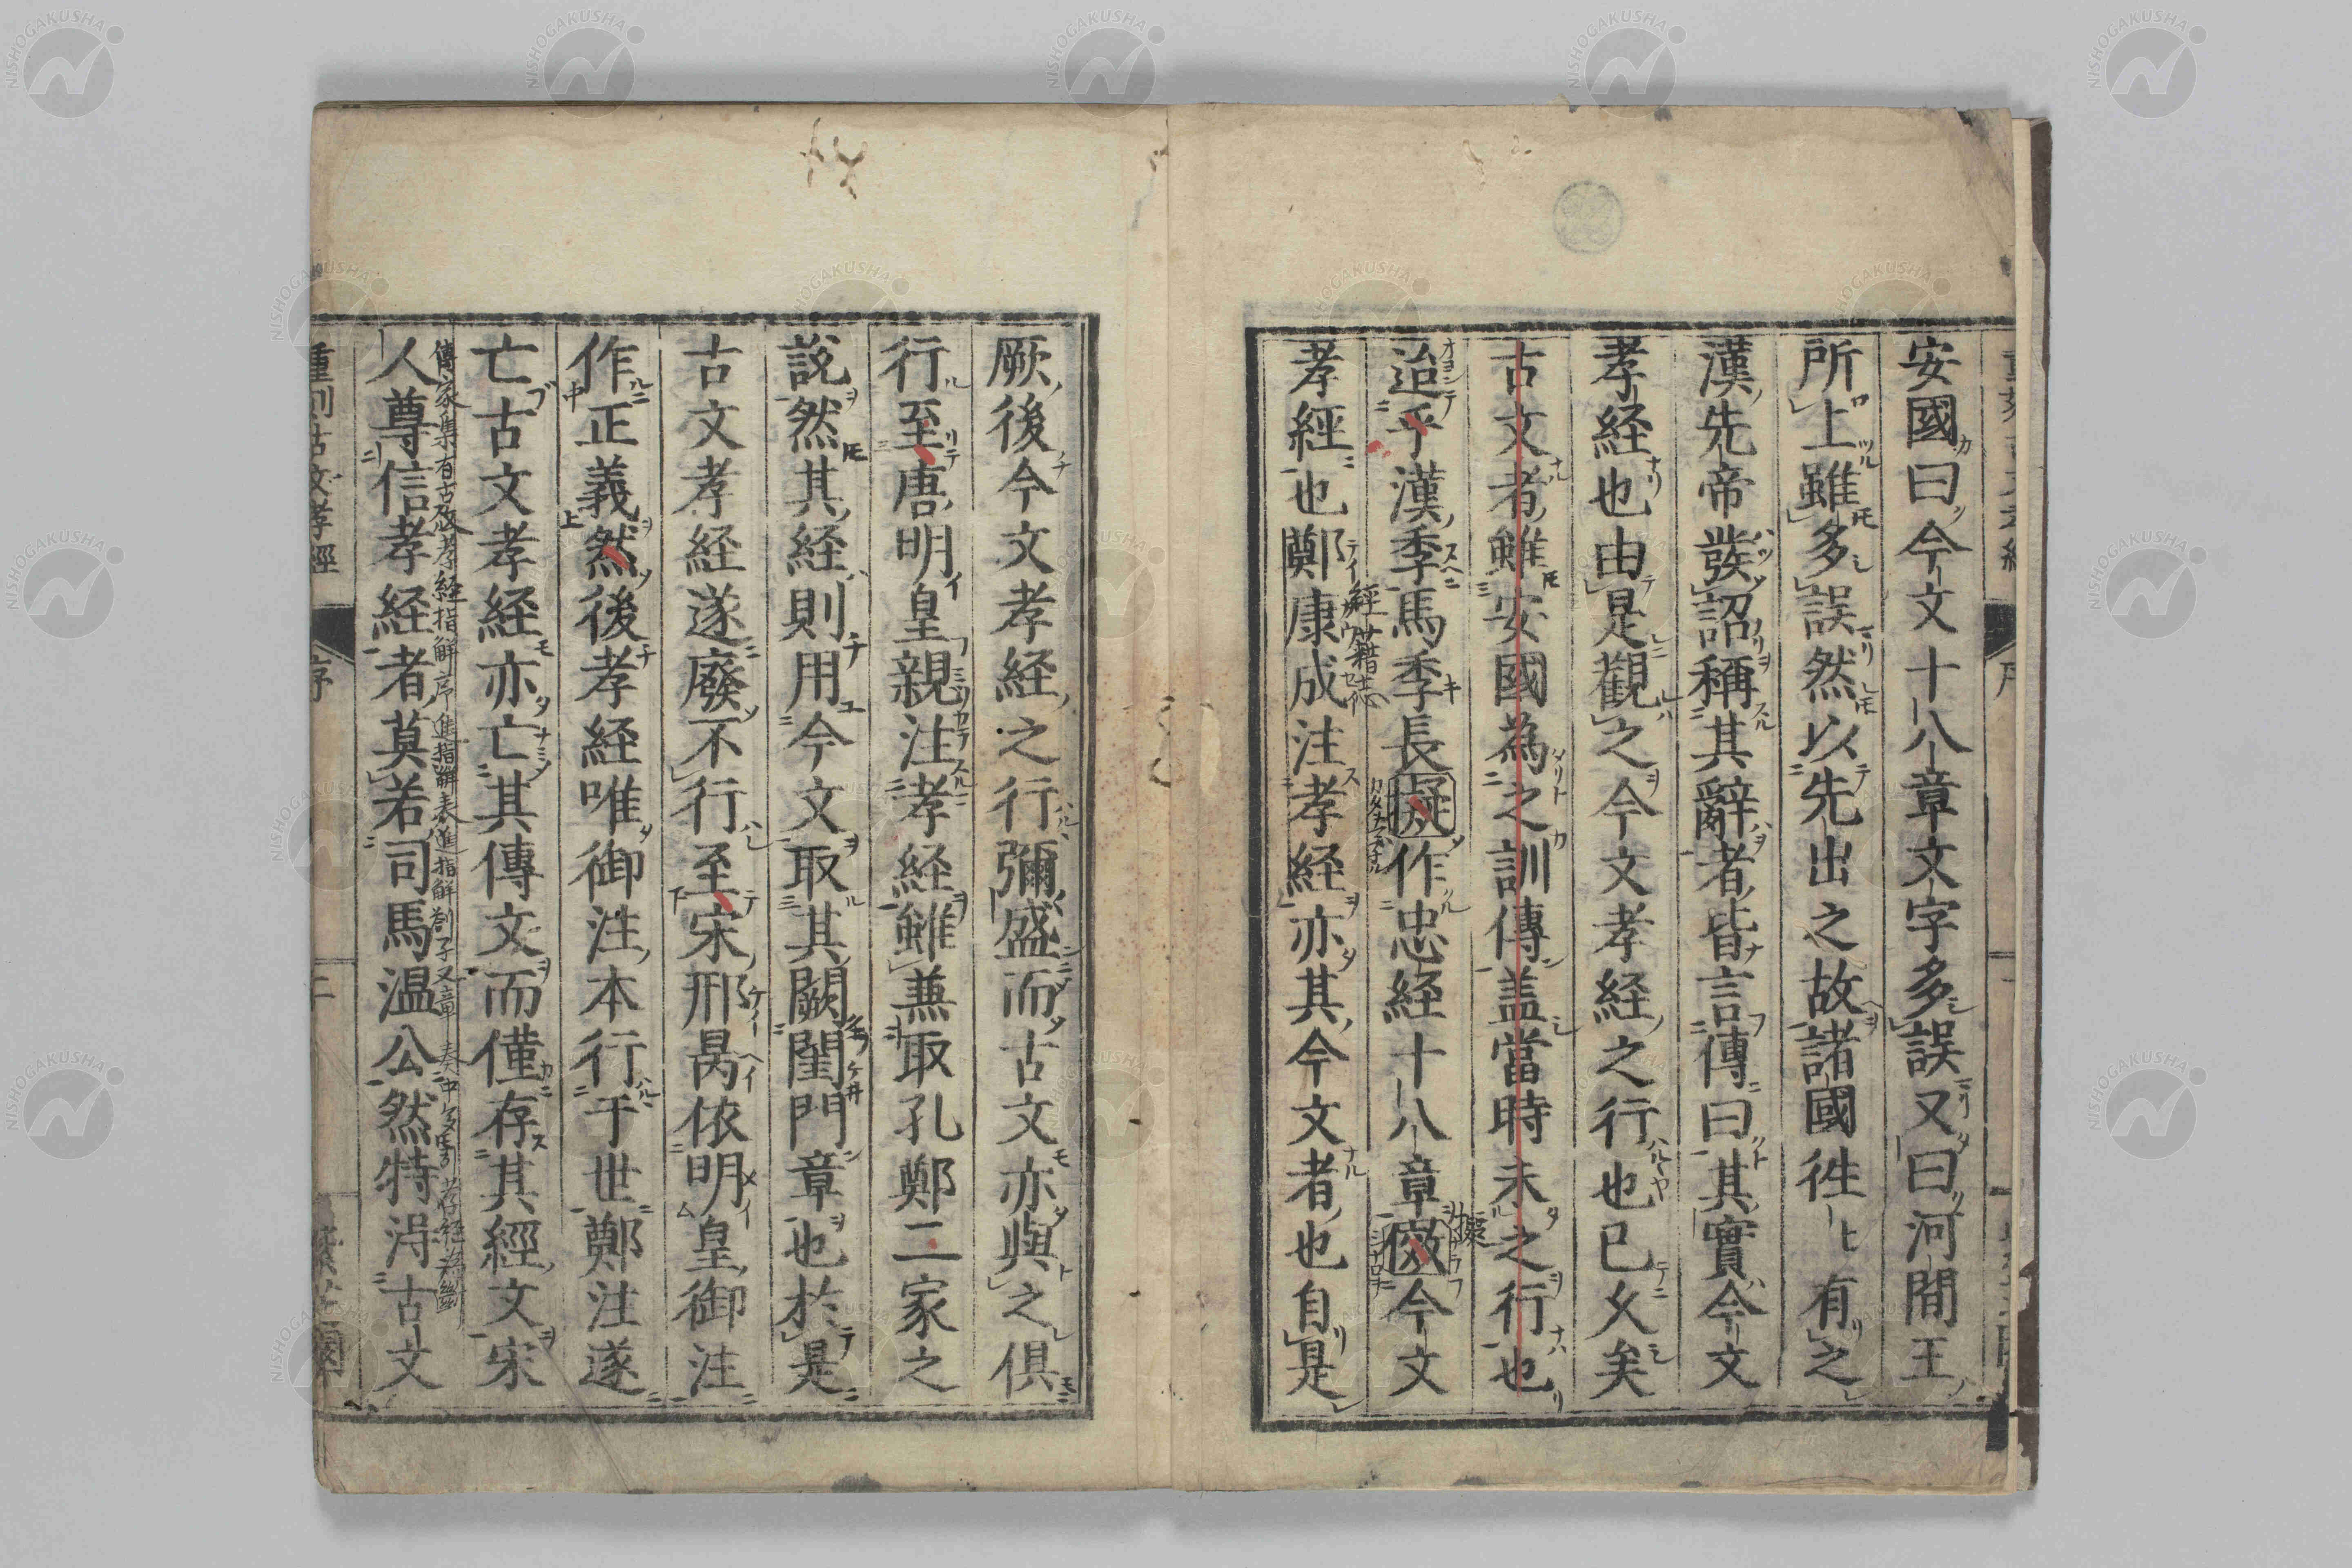 安國曰今文十八章文字多誤又曰河間王
所上雖多誤然以先出之故諸國徃〻有之
漢先帝發詔稱其辭者皆言傳曰其實今文
孝経也由是觀之今文孝経之行也已久矣
古文者雖安國為之訓傳盖當時未之行也
迨乎漢季馬季長擬作忠経十八章倣今文
孝經也鄭康成注孝経亦其今文者也自是
厥後今文孝経之行彌盛而古文亦與之俱
行至唐明皇親注孝経雖兼取孔鄭二家之
説然其経則用今文取其闕閨門章也於是
古文孝経遂廢不行至宋邢昺依明皇御注
作正義然後孝経唯御注本行于世鄭注遂
亡古文孝経亦亡其傳文而僅存其經文宋
傳家集有古文孝経指解序進指解表進指解劄子又章奏中多引孝経為
人尊信孝経者莫若司馬温公然特得古文
重刻古文孝經
序
二
NISHOGAKUSHA